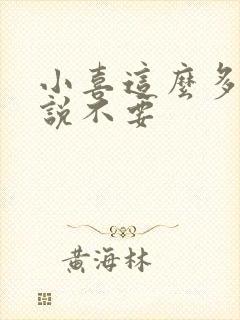 小喜這麼多
說不要
黃海林